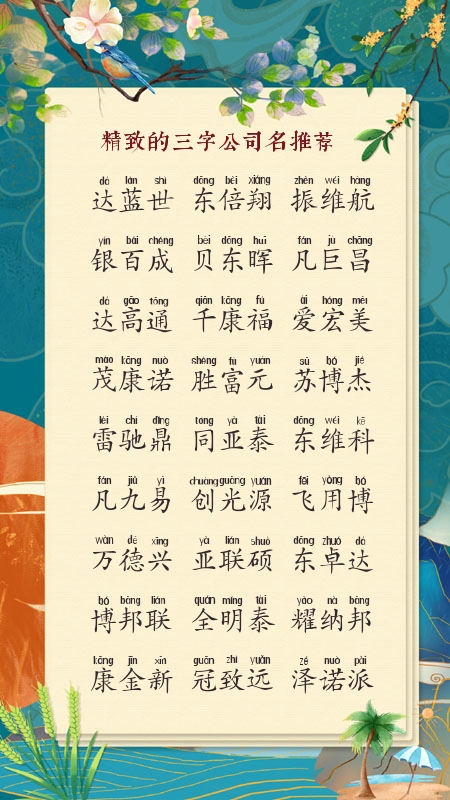 精致的三字公司名推荐
dá lán shì dōng bèi xiáng zhèn wéi háng
达蓝世 东倍翔 振维航
yín bǎi chéng bèi dōng huī fán jù chāng
银百成 贝东晖 凡巨昌
dá gāo tōng qiān kāng fú ài hóng měi
达高通 千康福 爱宏美
mào kāng nuò shèng fù yuán sū bó jié
茂康诺 胜富元 苏博杰
léi chí dǐng tóng yà tài dōng wéi kē
雷驰鼎 同亚泰 东维科
fán jiǔ yì chuàng guāng yuán fēi yòng bó
凡九易 创光源 飞用博
wàn dé xīng yà lián shuò dōng zhuó dá
万德兴 亚联硕 东卓达
bó bāng lián quán míng tài yào nà bāng
博邦联 全明泰 耀纳邦
kāng jīn xīn guān zhì yuǎn zé nuò pài
康金新 冠致远 泽诺派